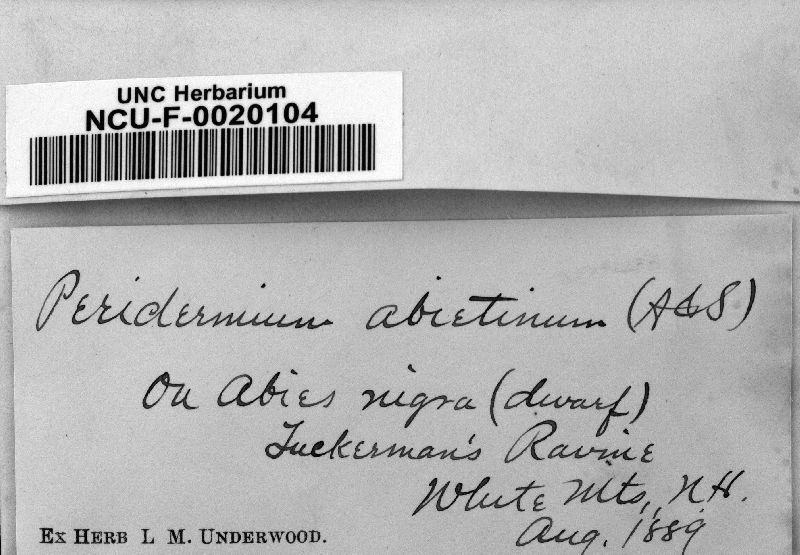 UNC Herbarium
NCU-F-0020104
Peridermium abietinum (A&S)
On Abies nigra (dwarf)
Tuckerman's Ravine
White Mts, N.H.
Aug. 1889
Ex Herb L M. Underwood.